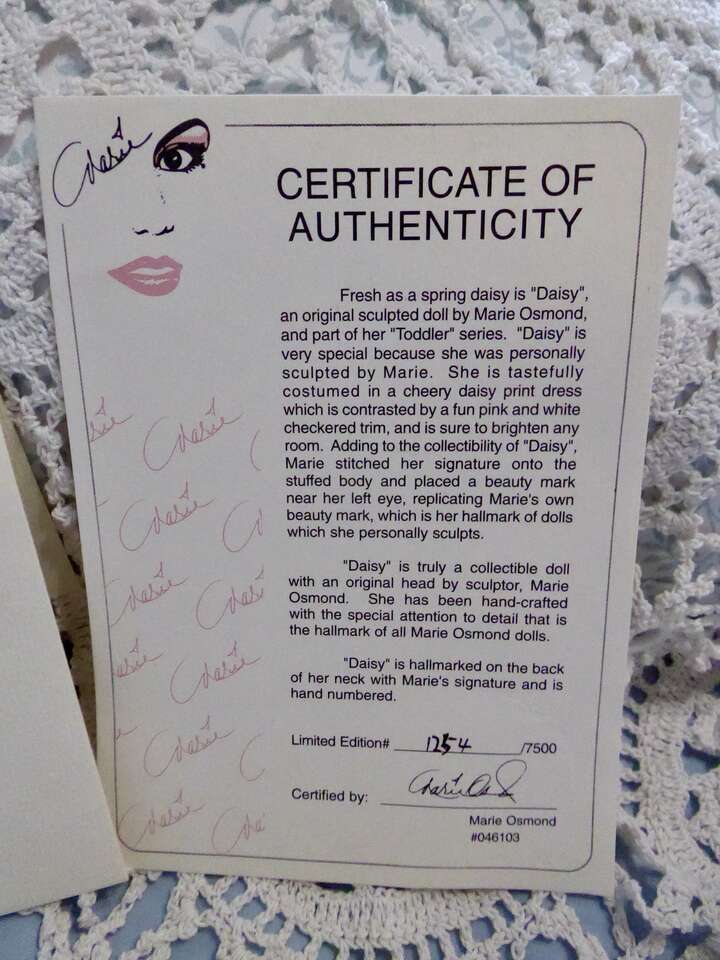 Marie
CERTIFICATE OF
AUTHENTICITY
Fresh as a spring daisy is "Daisy",
an original sculpted doll by Marie Osmond,
and part of her "Toddler" series. "Daisy" is
very special because she was personally
sculpted by Marie. She is tastefully
costumed in a cheery daisy print dress
which is contrasted by a fun pink and white
checkered trim, and is sure to brighten any
room. Adding to the collectibility of "Daisy",
Marie stitched her signature onto the
stuffed body and placed a beauty mark
near her left eye, replicating Marie's own
beauty mark, which is her hallmark of dolls
which she personally sculpts.
"Daisy" is truly a collectible doll
with an original head by sculptor, Marie
Osmond. She has been hand-crafted
with the special attention to detail that is
the hallmark of all Marie Osmond dolls.
"Daisy" is hallmarked on the back
of her neck with Marie's signature and is
hand numbered.
Limited Edition# 1254 /7500
Certified by: Marie Os
Marie Osmond
#046103
Marie
Marie
Marie
Marie
Marie
Marie